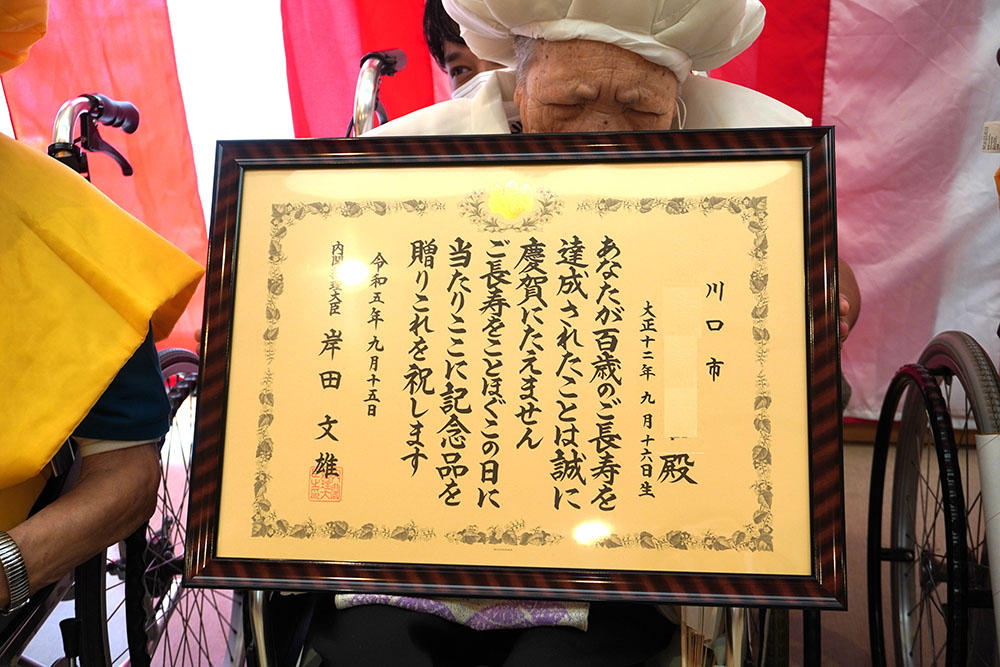 川口市
殿
大正十二年九月十六日生
あなたが百歳のご長寿を
達成されたことは誠に
慶賀にたえません
ご長寿をことほぐこの日に
当たりここに記念品を
贈りこれを祝します
令和五年九月十五日
内閣 大臣 岸田文雄